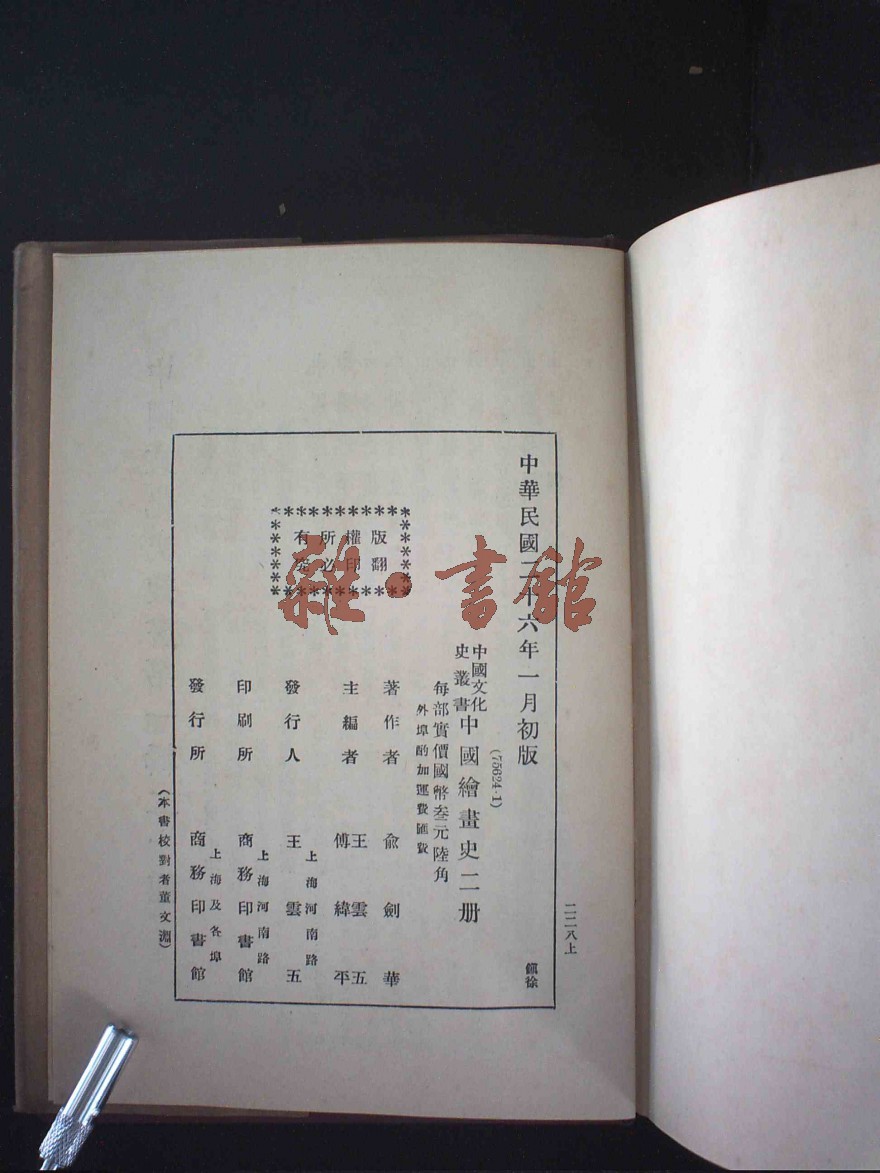 二二八上
中華民國二十六年一月初版
(75624·1)
鎭徐
中國文化
史叢書
中國繪畫史二册
每部實價國幣叁元陸角
外埠酌加運費匯費
版權所有
翻印必究
著作者 俞劍華
主編者 王雲五
傅緯平
上海河南路
發行人 王雲五
上海河南路
印刷所 商務印書館
上海及各埠
發行所 商務印書館
(本書校對者董文淵)
雜·書館